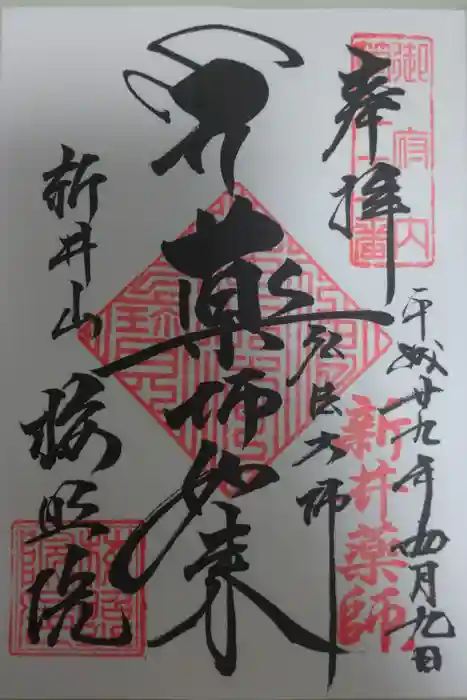 御府内
第七十一番
奉拝
平成廿九年四月九日
新井薬師
弘法大師
薬師如来
新井山
梅照院